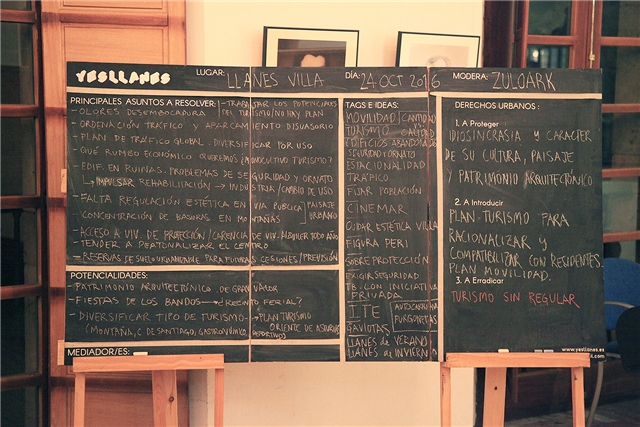 YESLLANES LUGAR: LLANES VILLA DÍA: 24 OCT 2016 MODERA: ZULOARK
PRINCIPALES ASUNTOS A RESOLVER:
- OLORES DESEMBOCADURA
- TRABAJAR LOS POTENCIALES
DEL TURISMO/NO HAY PLAN
- ORDENACIÓN TRÁFICO Y APARCAMIENTO DISUASORIO
- PLAN DE TRÁFICO GLOBAL. DIVERSIFICAR POR USO
- QUÉ RUMBO ECONÓMICO QUEREMOS ¿MONOCULTIVO TURISMO?
- EDIF. EN RUINAS. PROBLEMAS DE SEGURIDAD Y ORNATO
↳ IMPULSAR REHABILITACIÓN → INDUSTRIA/CAMBIO DE USO
- FALTA REGULACIÓN ESTÉTICA EN VÍA PÚBLICA
- CONCENTRACIÓN DE BASURAS EN MONTAÑAS
PAISAJE
URBANO
- ACCESO A VIV. DE PROTECCIÓN/CARENCIA DE VIV. ALQUILER TODO AÑO
- TENDER A PEATONALIZAR EL CENTRO
- RESERVAS DE SUELO URBANIZABLE PARA FUTURAS CESIONES/PREVISIÓN
POTENCIALIDADES:
- PATRIMONIO ARQUITECTÓNICO DE GRAN VALOR
- FIESTAS DE LOS BANDOS → ¿RECINTO FERIAL?
- DIVERSIFICAR TIPO DE TURISMO → PLAN TURISMO
(MONTAÑA, C. DE SANTIAGO, GASTRONÓMICO, DEPORTIVOS)
ORIENTE DE ASTURIAS
MEDIADOR/ES:
TAGS E IDEAS:
MOVILIDAD
TURISMO
CANTIDAD
CALIDAD
EDIFICIOS ABANDONADOS
SEGURIDAD Y ORNATO
ESTACIONALIDAD
TRÁFICO
FIJAR POBLACIÓN
CINEMAR
CUIDAR ESTÉTICA VILLA
FIGURA PERI
SOBRE PROTECCIÓN
EXIGIR SEGURIDAD
TB. CON INICIATIVA
PRIVADA
ITE
AUTOCARAVANA
FURGONETAS
GAVIOTAS
LLANES de VERANO
LLANES de INVIERNO
DERECHOS URBANOS:
1. A Proteger
IDIOSINCRASIA Y CARACTER
DE SU CULTURA, PAISAJE
Y PATRIMONIO ARQUITECTÓNICO
2. A Introducir
PLAN TURISMO PARA
RACIONALIZAR Y
COMPATIBILIZAR CON RESIDENTES.
PLAN MOVILIDAD.
3. A Erradicar
TURISMO SIN REGULAR
www.yesllanes.es